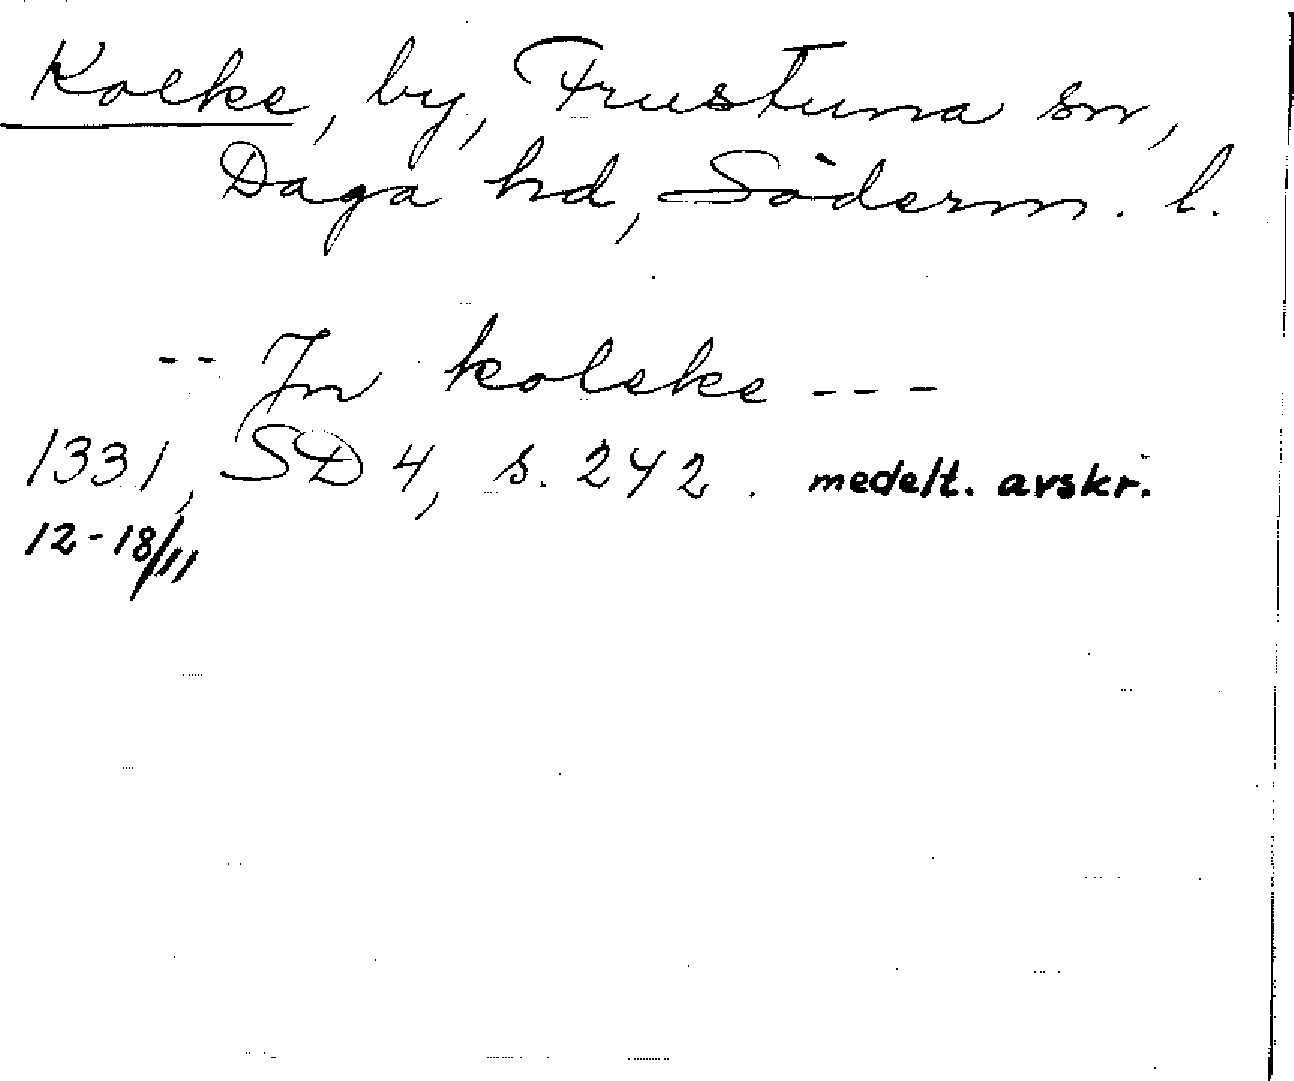 Kolke, by, Frustuna sn,
Daga hd, Söderm. l.
-- In kolske ---
1331, SD 4, s. 242. medelt. avskr.
12-18/11